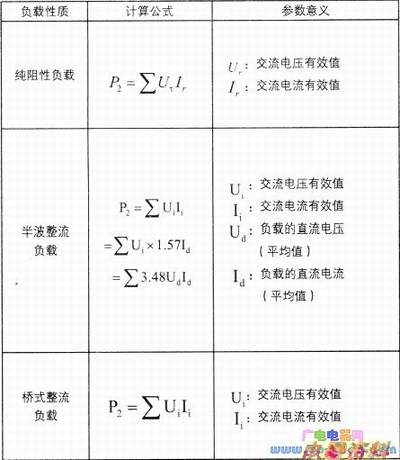 负载性质 计算公式 参数意义
纯阻性负载
P₂=∑UτIr
Ur：交流电压有效值
Ir：交流电流有效值
半波整流
负载
P₂=∑UiIi
=∑Ui×1.57Id
=∑3.48UdId
Ui：交流电压有效值
Ii：交流电流有效值
Ud：负载的直流电压
（平均值）
Id：负载的直流电流
（平均值）
桥式整流
负载
P₂=∑UiIi
Ui：交流电压有效值
Ii：交流电流有效值
广电电器网